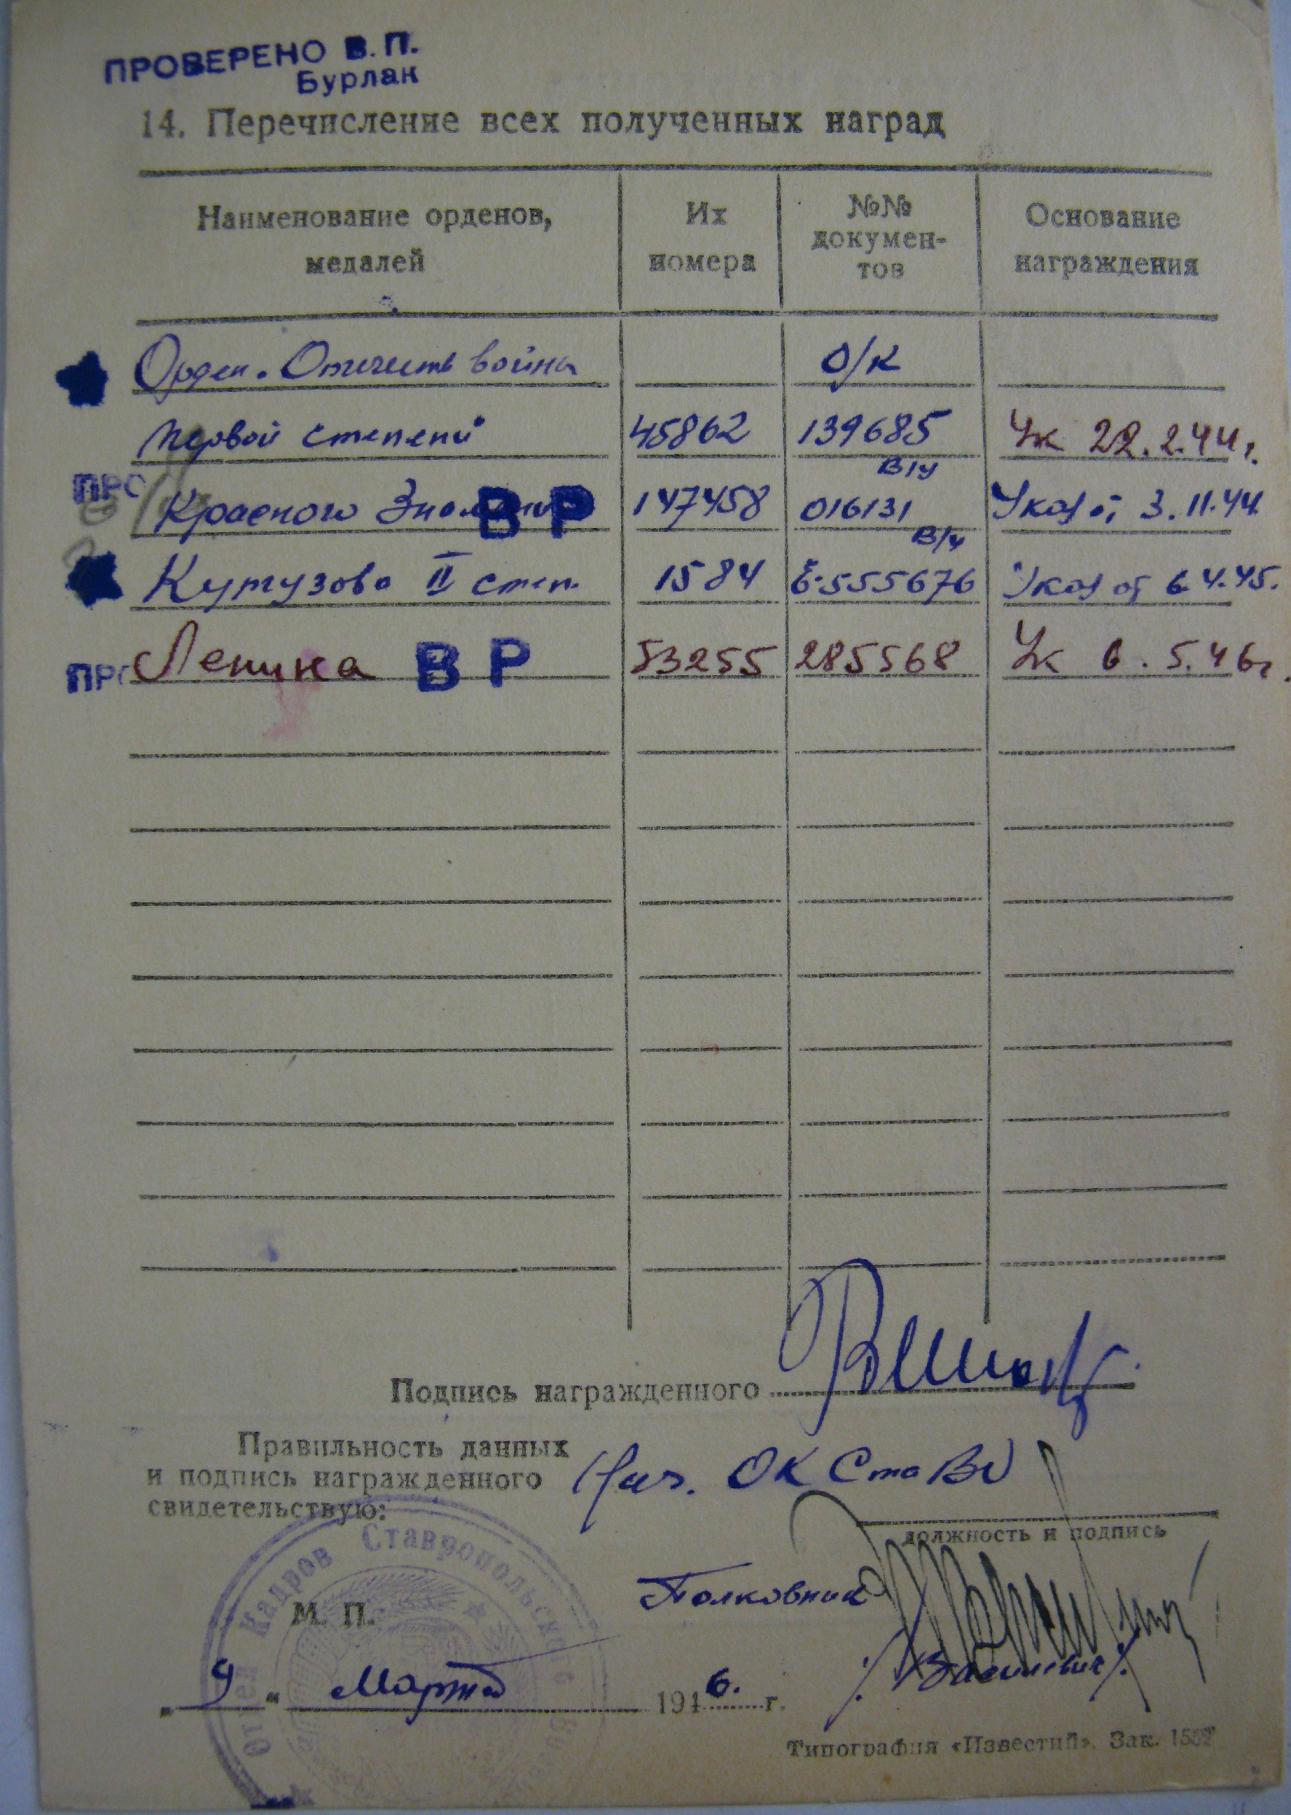 ПРОВЕРЕНО В. П.
Бурлак
14. Перечисление всех полученных наград
Наименование орденов, медалей
Их номера
№№ докумен-тов
Основание награждения
Орден. Отечеств война О/К
первой степени 45862 139685 Ук 22.2.44 г.
В/ч
ПРО Красного Знамени ВР 147458 016131 Указ от 3.11.44.
В/ч
Кутузова II степ. 1584 555676 Указ от 6.4.45.
ПРО Ленина ВР 53255 285568 Ук 6.5.46г.
Подпись награжденного
Правильность данных
и подпись награжденного Нач. ОК СтаВО
свидетельствую:
должность и подпись
Полковник
М. П.
/Василевич/
„ 9 " Марта 1946. г.
Отдел Кадров Ставропольского
Типография «Известий». Зак.